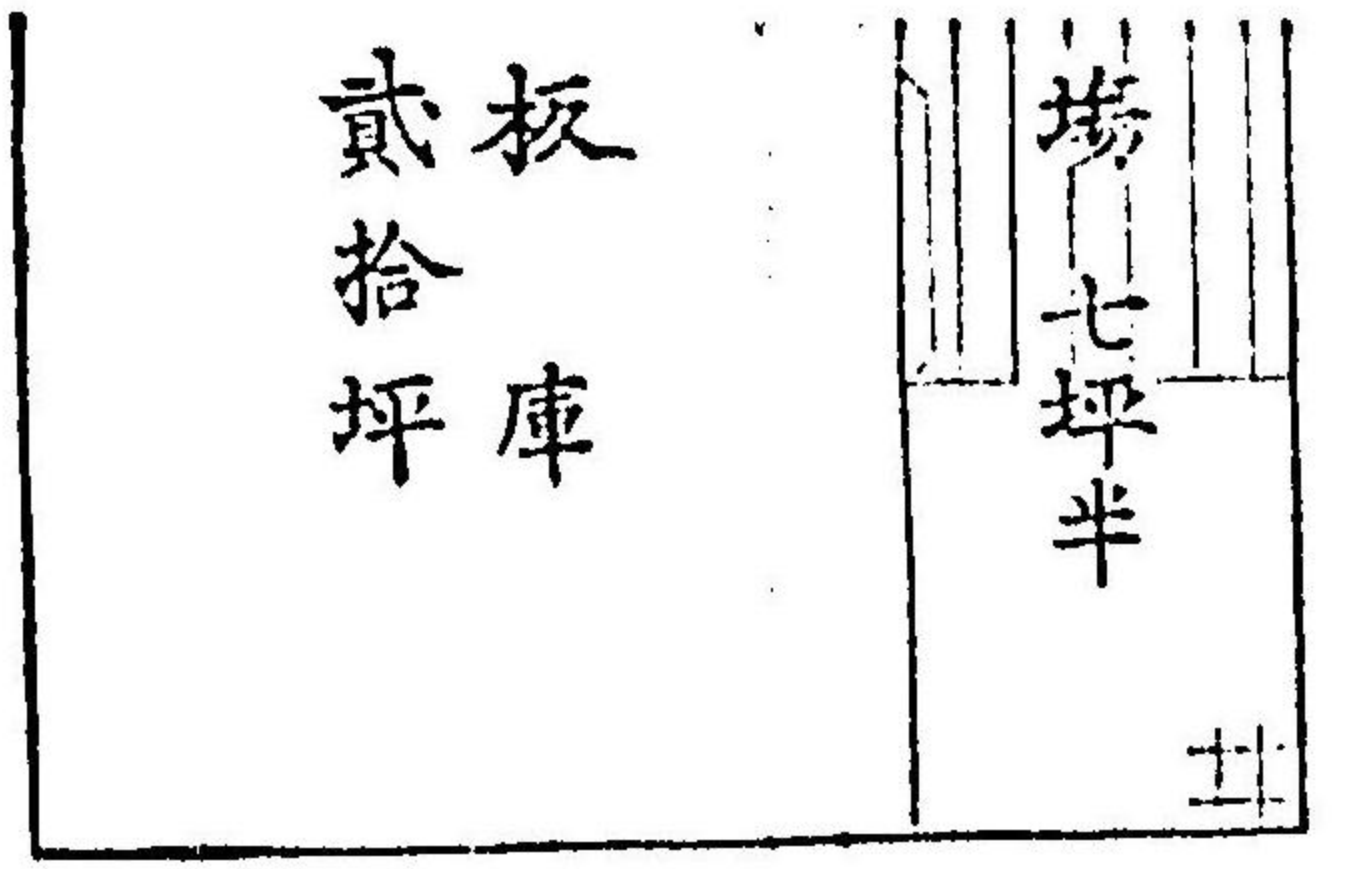 場 七坪半
板庫
貳拾坪